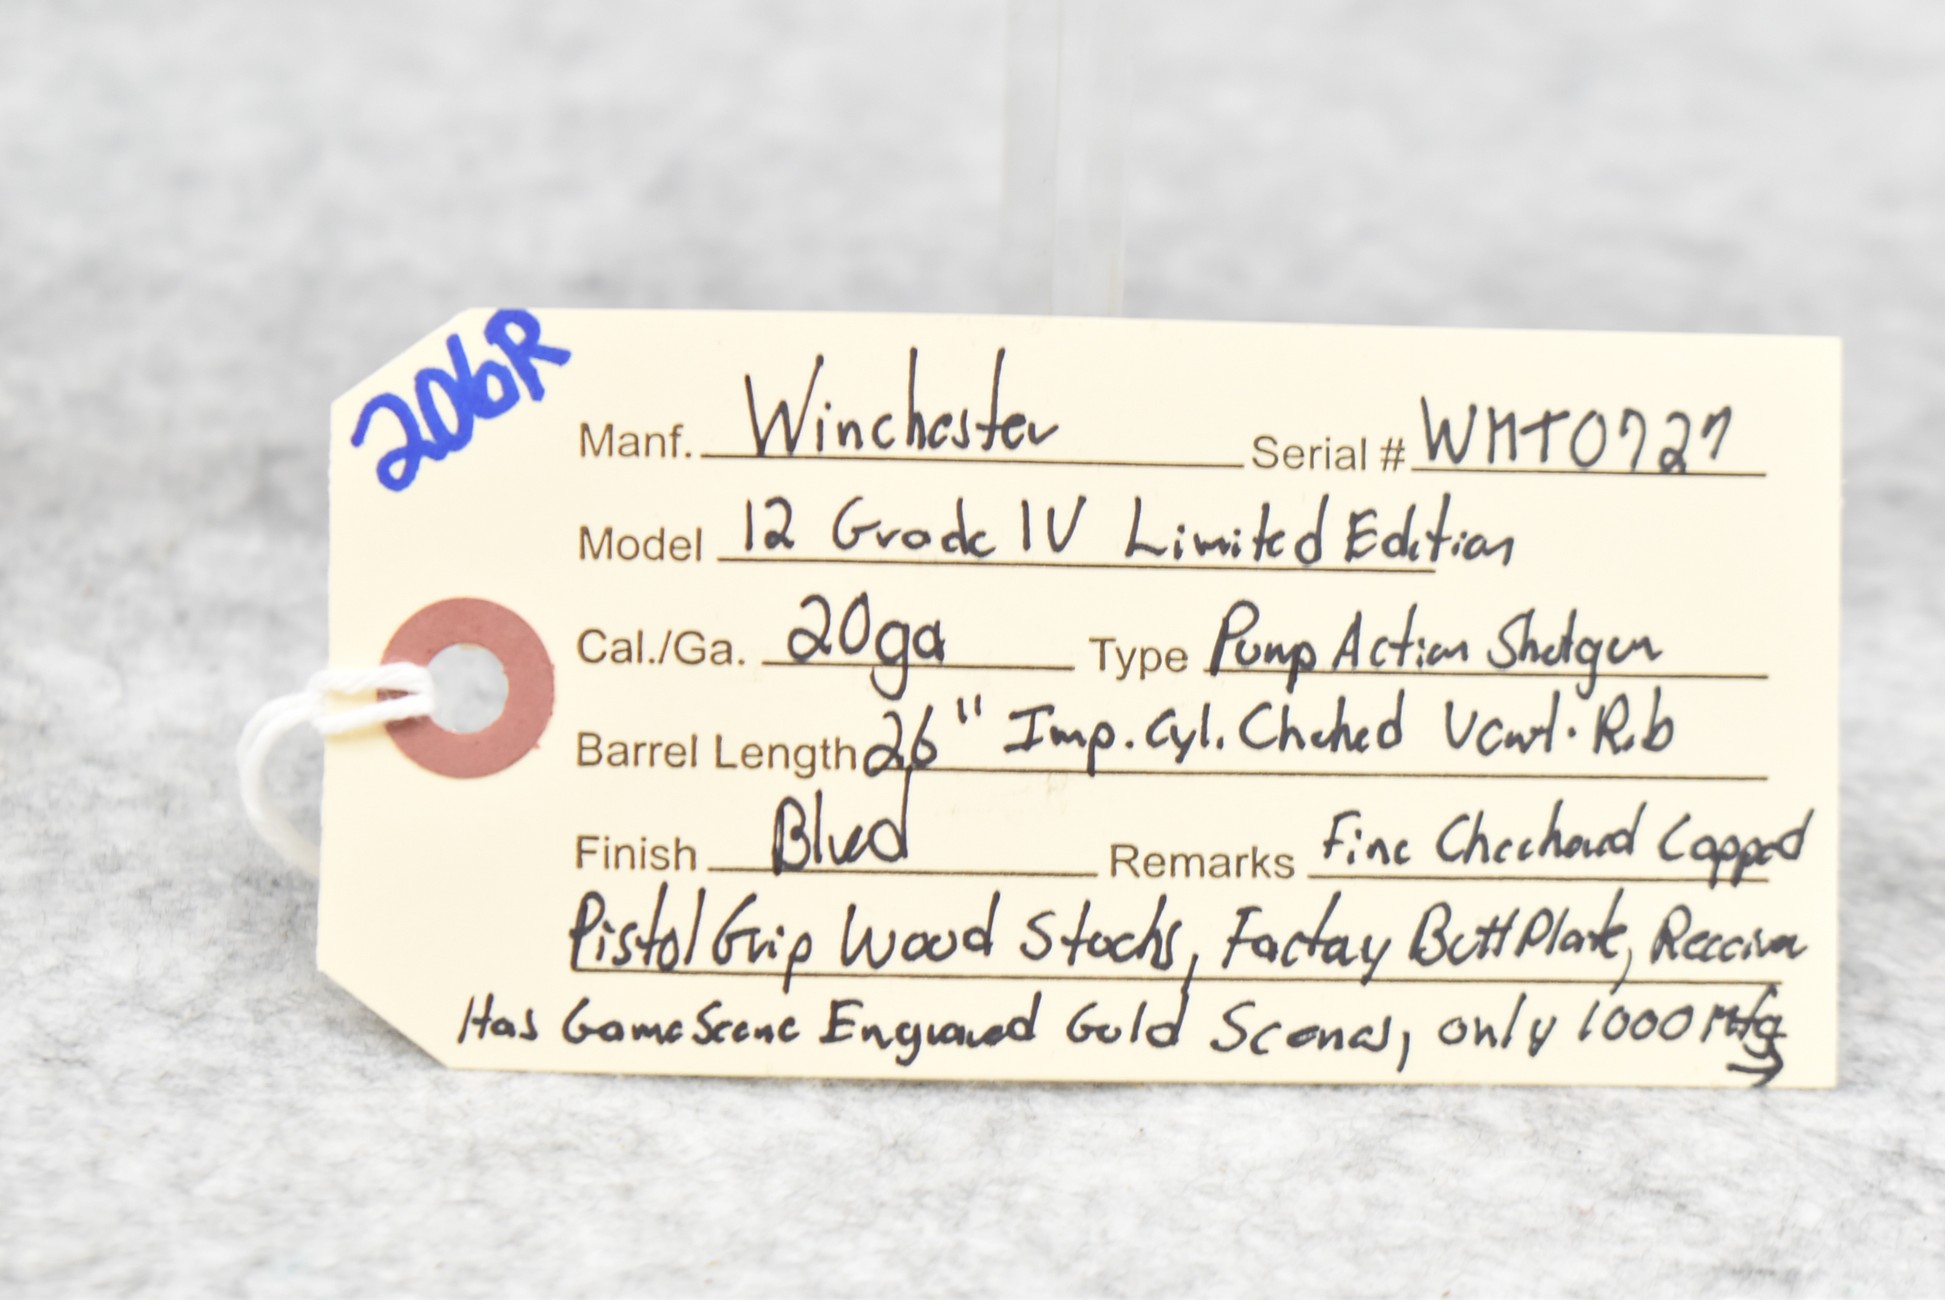 206R
Manf. Winchester Serial # WMT0727
Model 12 Grade IV Limited Edition
Cal./Ga. 20ga Type Pump Action Shotgun
Barrel Length 26" Imp. Cyl. Choked Vent. Rib
Finish Blued Remarks Fine Checkered Capped
Pistol Grip Wood Stocks, Factory Butt Plate, Receiver
Has Game Scene Engraved Gold Scenes, only 1000 Mfg
→